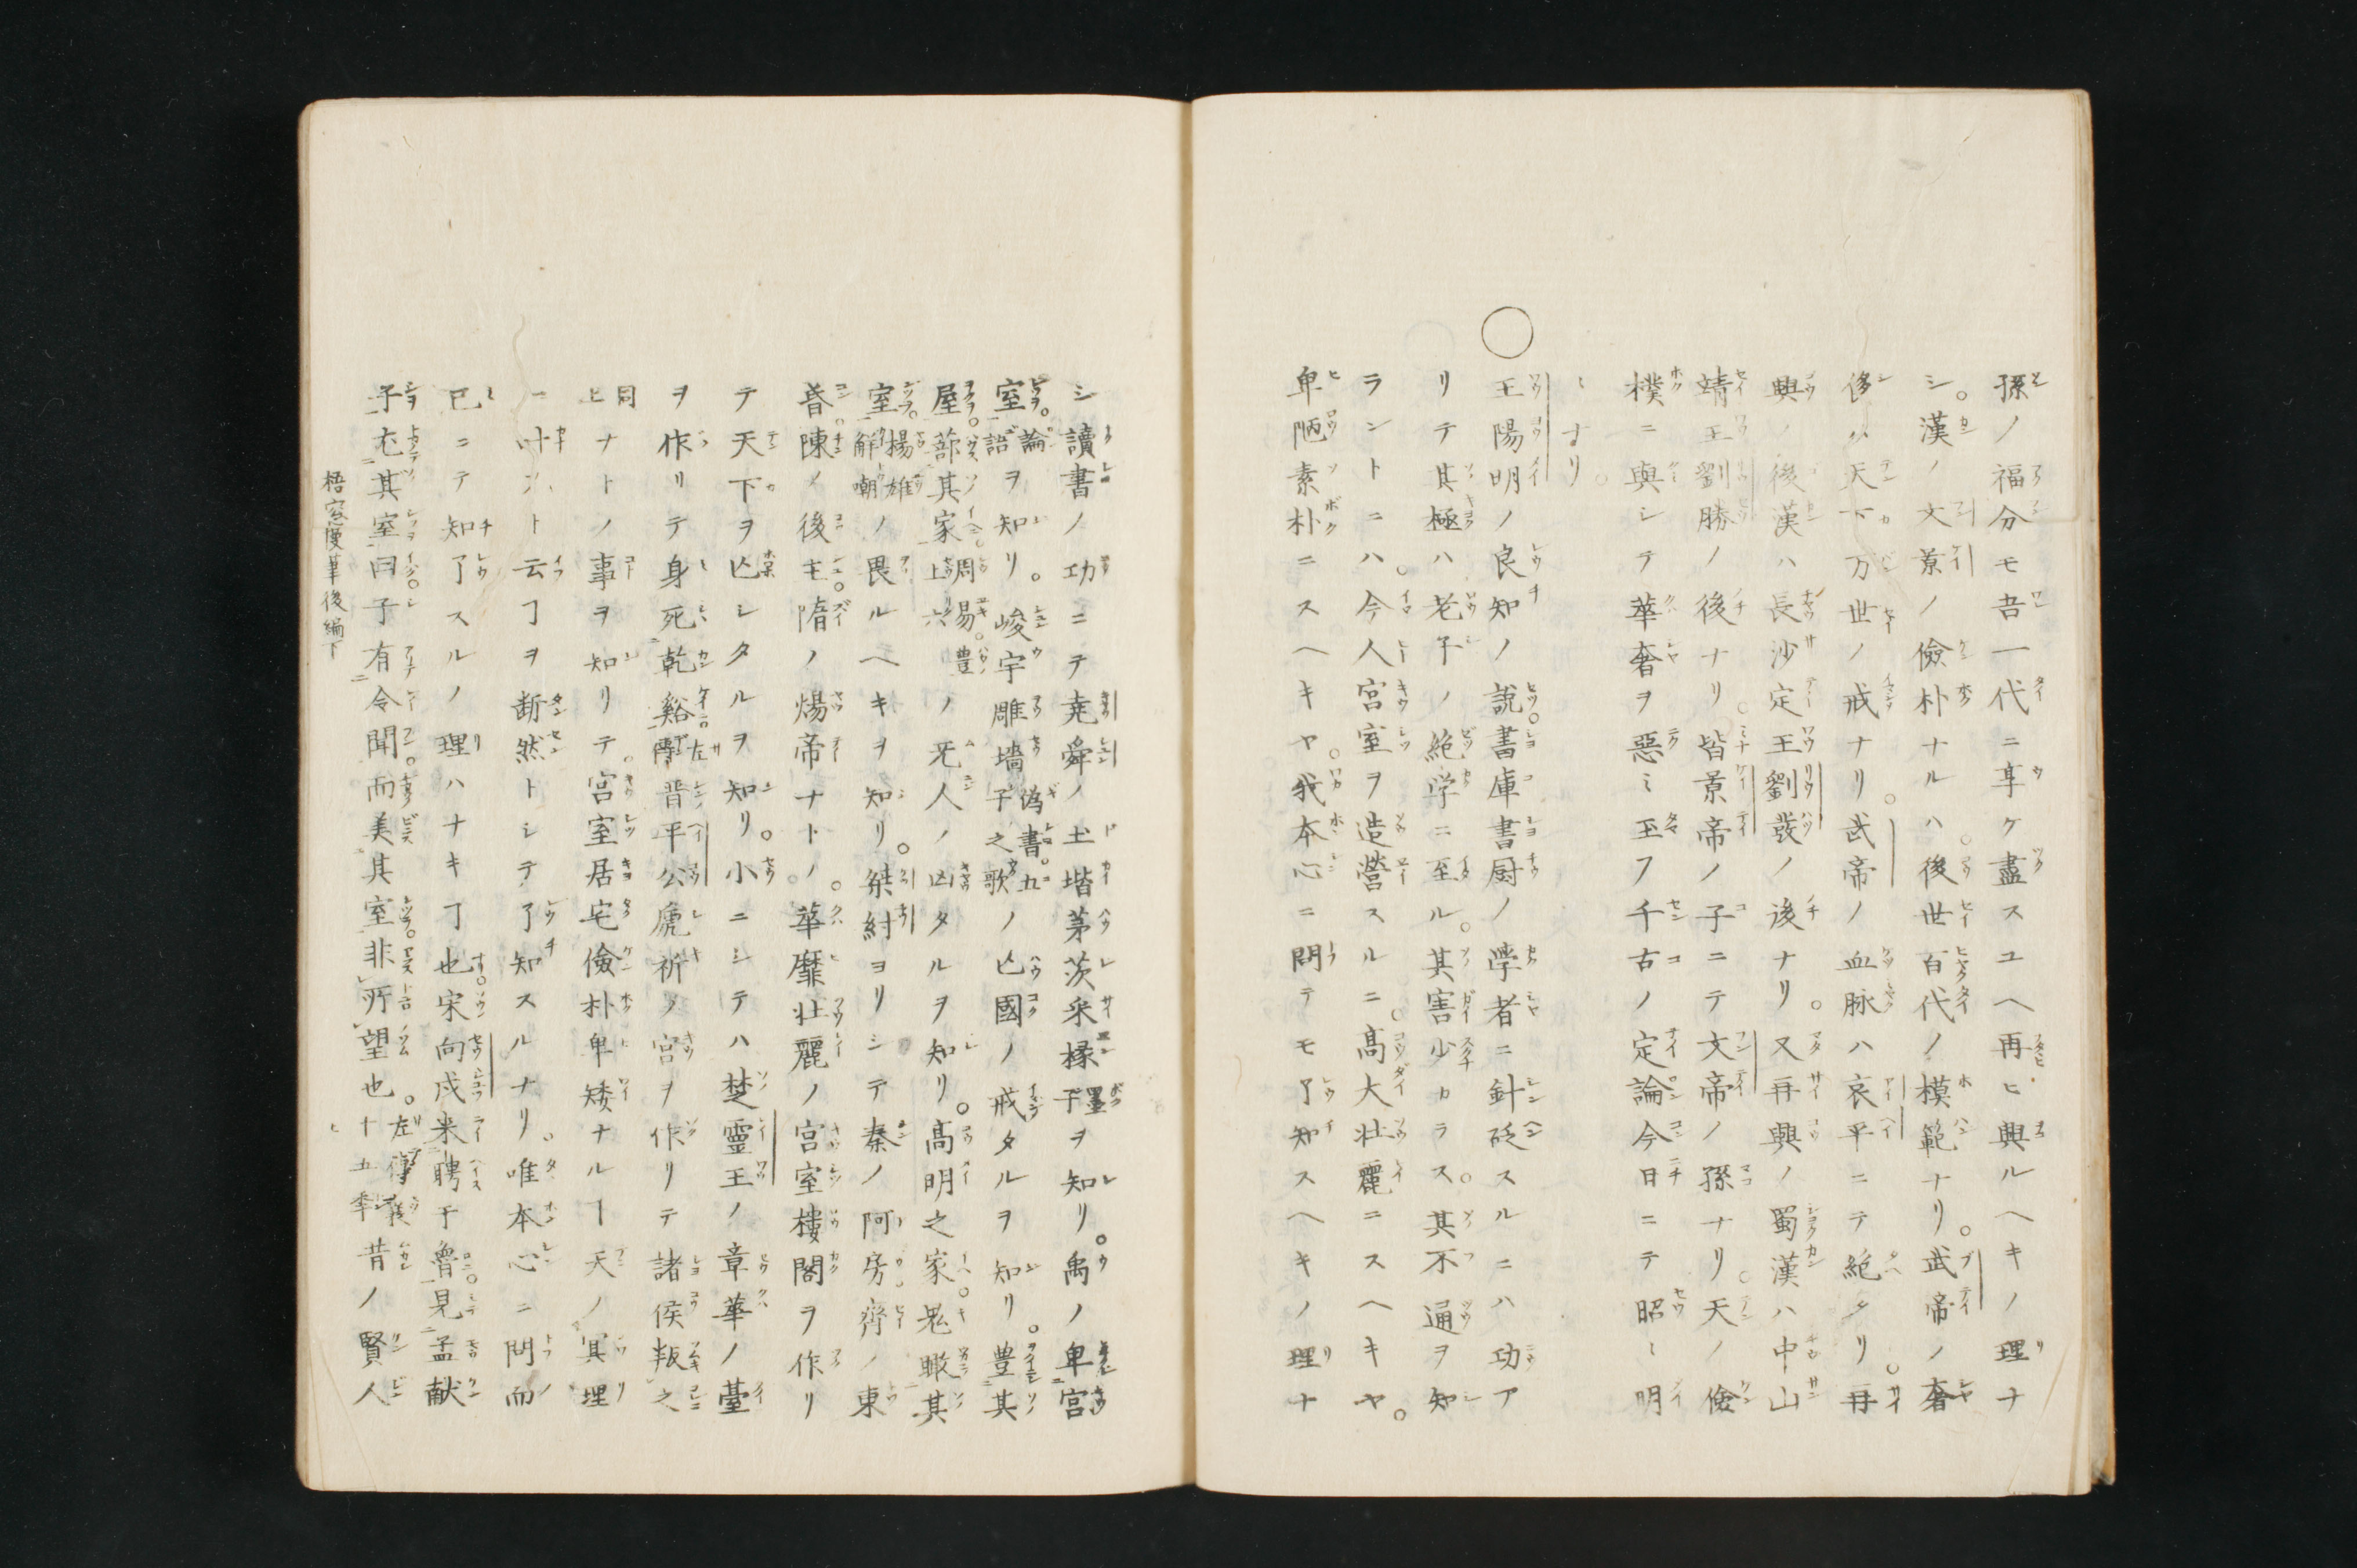 孫ノ福分モ吾一代ニ享ケ盡スユヘ再ヒ興ルヘキノ理ナ
シ。漢ノ文景ノ儉朴ナルハ。後世百代ノ模範ナリ。武帝ノ奢
侈ハ天下万世ノ戒ナリ。武帝ノ血脉ハ哀平ニテ絶タリ。再
興ノ後漢ハ長沙定王劉發ノ後ナリ。又再興ノ蜀漢ハ中山
靖王劉勝ノ後ナリ。皆景帝ノ子ニテ文帝ノ孫ナリ。天ノ儉
樸ニ與シテ華奢ヲ惡ミ玉フ千古ノ定論今日ニテ昭〻明
〻ナリ。
○王陽明ノ良知ノ説。書庫書厨ノ學者ニ針砭スルニハ功ア
リテ其極ハ老子ノ絶学ニ至ル。其害少カラス。其不通ヲ知
ラントニハ。今人宮室ヲ造營スルニ。高大壮麗ニスヘキヤ。
卑陋素朴ニスヘキヤ。我本心ニ問テモ了知スヘキノ理ナ
シ讀書ノ功ニテ堯舜ノ土堦茅茨采椽墨子ヲ知リ。禹ノ卑宮
室。論語ヲ知リ。峻宇雕墻偽書。五子之歌ノ亡國ノ戒タルヲ知リ。豊其
屋。蔀其家周易。豊上六ノ无人ノ凶タルヲ知リ。高明之家。鬼瞰其
室楊雄解嘲ノ畏ルヘキヲ知リ。桀紂ヨリシテ秦ノ阿房。齊ノ東
昏。陳ノ後主。隋ノ煬帝ナトノ。華靡壮麗ノ宮室樓閣ヲ作リ
テ天下ヲ亡シタルヲ知リ。小ニシテハ楚靈王ノ章華ノ臺
ヲ作リテ身死乾谿左傳晋平公虒祈ノ宮ヲ作リテ諸侯叛之
同上ナトノ事ヲ知リテ。宮室居宅儉朴卑矮ナルヿ天ノ冥理
ニ叶フト云ヿヲ断然トシテ了知スルナリ。唯本心ニ問而
已ニテ知了スルノ理ハナキヿ也。宋向戍来聘于魯。見孟献
子。尤其室曰。子有令聞。而美其室。非所望也。左傳襄十五年昔ノ賢人
梧窓漫筆後編下